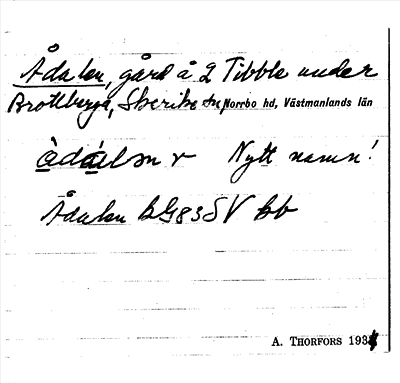 Ådalen, gård å 2 Tibble under
Brottberga, Skerike sn, Norrbo hd, Västmanlands län
Nytt namn!
Ådalen bG83SV bb
A. THORFORS 1934